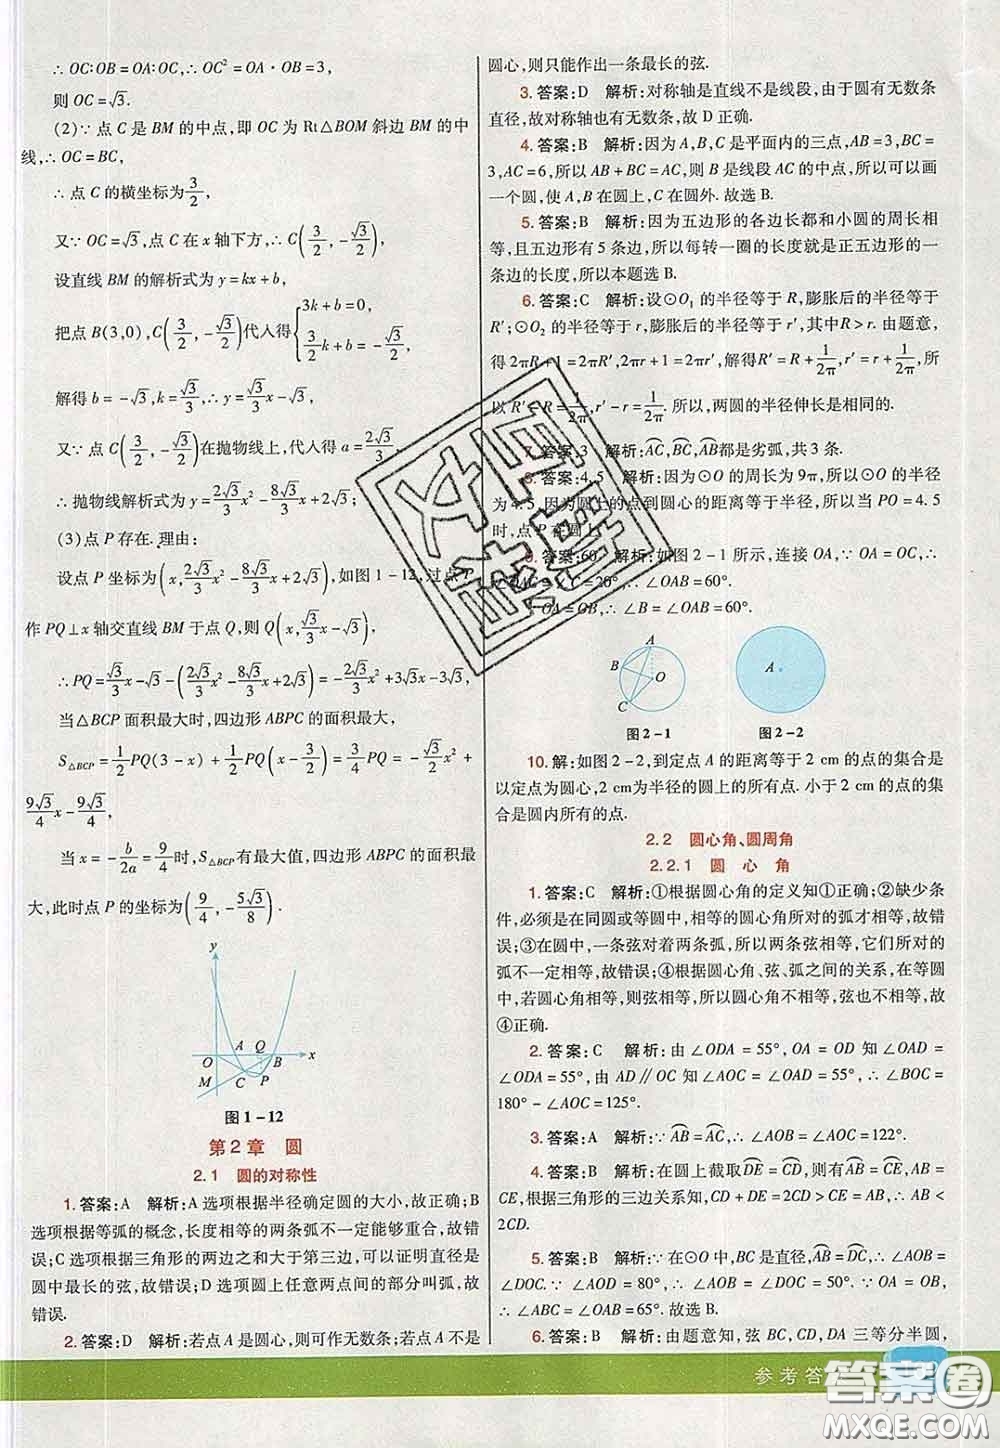 ∴ OC∶OB = OA∶OC,∴ OC² = OA·OB = 3,
则 OC = √3.
(2)∵ 点 C 是 BM 的中点,即 OC 为 Rt△BOM 斜边 BM 的中
线,∴ OC = BC,
∴ 点 C 的横坐标为 3/2,
又∵ OC = √3,点 C 在 x 轴下方,∴ C(3/2, -√3/2),
设直线 BM 的解析式为 y = kx + b,
把点 B(3,0),C(3/2, -√3/2)代入得{3k + b = 0, 3/2 k + b = -√3/2,
解得 b = -√3,k = √3/3,∴ y = √3/3 x - √3,
又∵ 点 C(3/2, -√3/2)在抛物线上,代入得 a = 2√3/3,
∴ 抛物线解析式为 y = 2√3/3 x² - 8√3/3 x + 2√3;
(3)点 P 存在. 理由:
设点 P 坐标为(x, 2√3/3 x² - 8√3/3 x + 2√3),如图 1-12,过点 P
作 PQ⊥x 轴交直线 BM 于点 Q,则 Q(x, √3/3 x - √3),
∴ PQ = √3/3 x - √3 - (2√3/3 x² - 8√3/3 x + 2√3) = -2√3/3 x² + 3√3x - 3√3,
当△BCP 面积最大时,四边形 ABPC 的面积最大,
S△BCP = 1/2 PQ(3 - x) + 1/2 PQ(x - 3/2) = 3/4 PQ = -√3/2 x² +
9√3/4 x - 9√3/4,
当 x = -b/2a = 9/4时,S△BCP有最大值,四边形 ABPC 的面积最
大,此时点 P 的坐标为(9/4, -5√3/8).
y
O A Q B x
M C P
图 1-12
第 2 章 圆
2.1 圆的对称性
1. 答案:A 解析:A 选项根据半径确定圆的大小,故正确;B
选项根据等弧的概念,长度相等的两条弧不一定能够重合,故错
误;C 选项根据三角形的两边之和大于第三边,可以证明直径是
圆中最长的弦,故错误;D 选项圆上任意两点间的部分叫弧,故
错误.
2. 答案:D 解析:若点 A 是圆心,则可作无数条;若点 A 不是
圆心,则只能作出一条最长的弦.
3. 答案:D 解析:对称轴是直线不是线段,由于圆有无数条
直径,故对称轴也有无数条,故 D 正确.
4. 答案:B 解析:因为 A,B,C 是平面内的三点,AB = 3,BC =
3,AC = 6,所以 AB + BC = AC,则 B 是线段 AC 的中点,所以可以
画一个圆,使 A,B 在圆上,C 在圆外. 故选 B.
5. 答案:B 解析:因为五边形的各边长都和小圆的周长相
等,且五边形有 5 条边,所以每转一圈的长度就是正五边形的一
条边的长度,所以本题选 B.
6. 答案:C 解析:设⊙O₁ 的半径等于 R,膨胀后的半径等于
R′;⊙O₂ 的半径等于 r,膨胀后的半径等于 r′,其中R > r. 由题意,
得 2πR + 1 = 2πR′,2πr + 1 = 2πr′,解得R′ = R + 1/2π,r′ = r + 1/2π,所
以 R′ - R = 1/2π,r′ - r = 1/2π. 所以,两圆的半径伸长是相同的.
7. 答案:3 解析:AC⌒,BC⌒,AB⌒都是劣弧,共 3 条.
8. 答案:4.5 解析:因为⊙O 的周长为 9π,所以⊙O 的半径
为 4.5,因为圆上的点到圆心的距离等于半径,所以当 PO = 4.5
时,点 P 在圆上.
9. 答案:60° 解析:如图 2-1 所示,连接 OA,∵ OA = OC,∴
∠OAC = ∠C = 20°,∴ ∠OAB = 60°.
∵ OA = OB,∴ ∠B = ∠OAB = 60°.
A B O C
图 2-1
A
图 2-2
10. 解:如图 2-2,到定点 A 的距离等于 2 cm 的点的集合是
以定点为圆心,2 cm为半径的圆上的所有点. 小于 2 cm 的点的集
合是圆内所有的点.
2.2 圆心角、圆周角
2.2.1 圆 心 角
1. 答案:C 解析:①根据圆心角的定义知①正确;②缺少条
件,必须是在同圆或等圆中,相等的圆心角所对的弧才相等,故错
误;③在圆中,一条弦对着两条弧,所以两条弦相等,它们所对的
弧不一定相等,故错误;④根据圆心角、弦、弧之间的关系,在等圆
中,若圆心角相等,则弦相等,所以圆心角不相等,弦也不相等,故
④正确.
2. 答案:C 解析:由 ∠ODA = 55°,OA = OD 知 ∠OAD =
∠ODA = 55°,由 AD∥OC 知 ∠AOC = ∠OAD = 55°,∴ ∠BOC =
180° - ∠AOC = 125°.
3. 答案:A 解析:∵ AB⌒ = AC⌒,∴ ∠AOB = ∠AOC = 122°.
4. 答案:B 解析:在圆上截取DE⌒ = CD⌒,则有 AB⌒ = CE⌒,AB =
CE,根据三角形的三边关系知,CD + DE = 2CD > CE = AB,∴ AB <
2CD.
5. 答案:B 解析:∵ 在⊙O 中,BC 是直径,AB⌒ = DC⌒,∴ ∠AOB
= ∠DOC. ∵ ∠AOD = 80°,∴ ∠AOB = ∠DOC = 50°. ∵ OA = OB,
∴ ∠ABC = ∠OAB = 65°. 故选 B.
6. 答案:B 解析:由题意知,弦 BC,CD,DA 三等分半圆,
参 考 答
答案圈
MXQE.COM